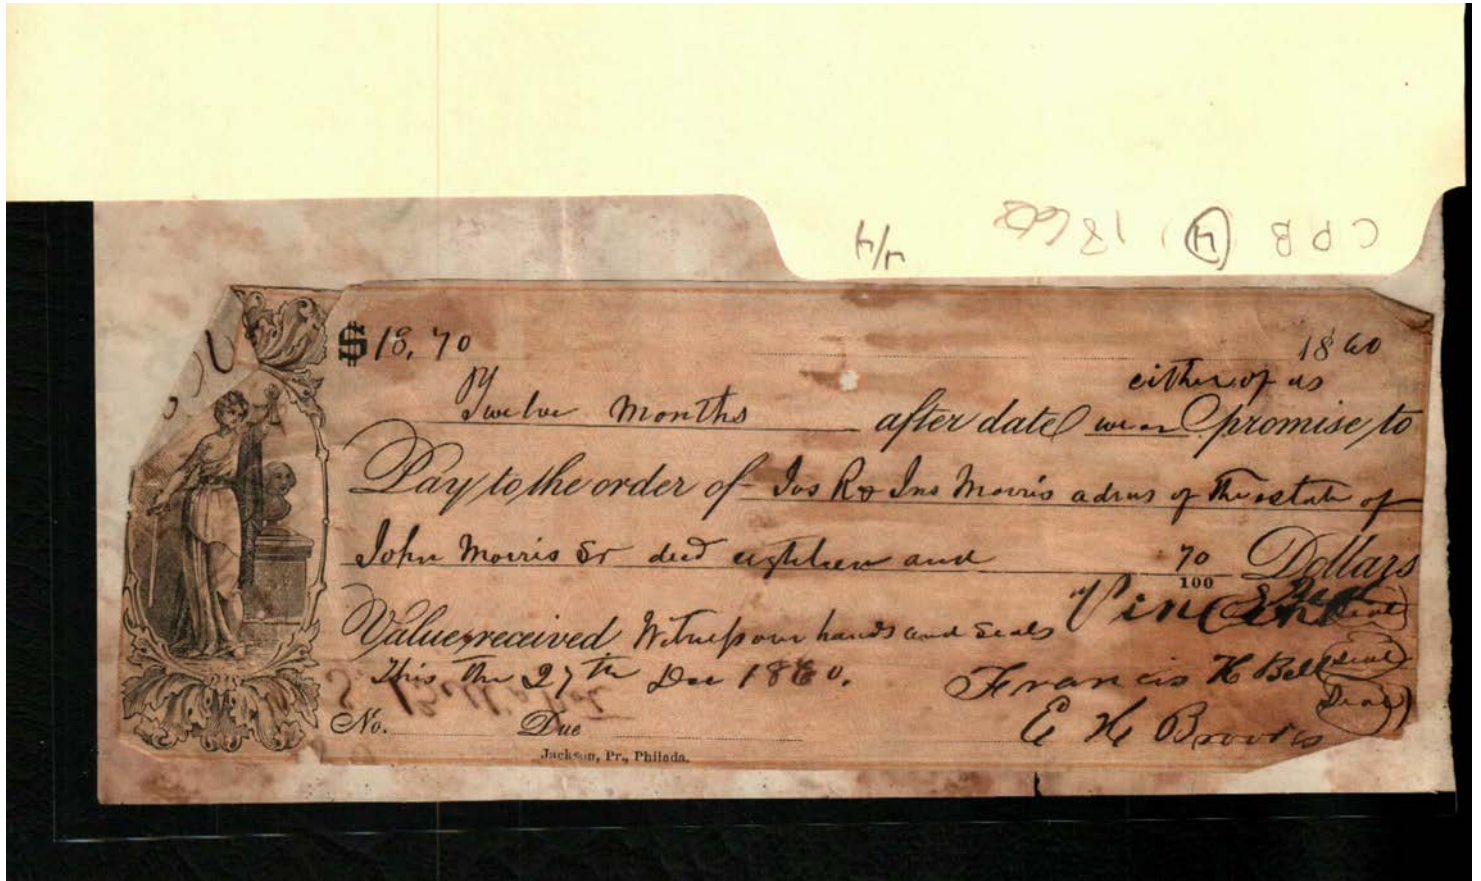 CPB (4) 1860
4/4
$18,70 1860
either of us
Twelve Months after date we or promise to
Pay to the order of Jos R & Jno Morris admrs of the estate of
John Morris Sr decd eighteen and 70/100 Dollars
Value received Witness our hands and Seals
(Seal)
This the 27th Dec 1860. Francis H Bell (Seal)
No. Due E H Brooks (Seal)
Jackson, Pr., Philada.